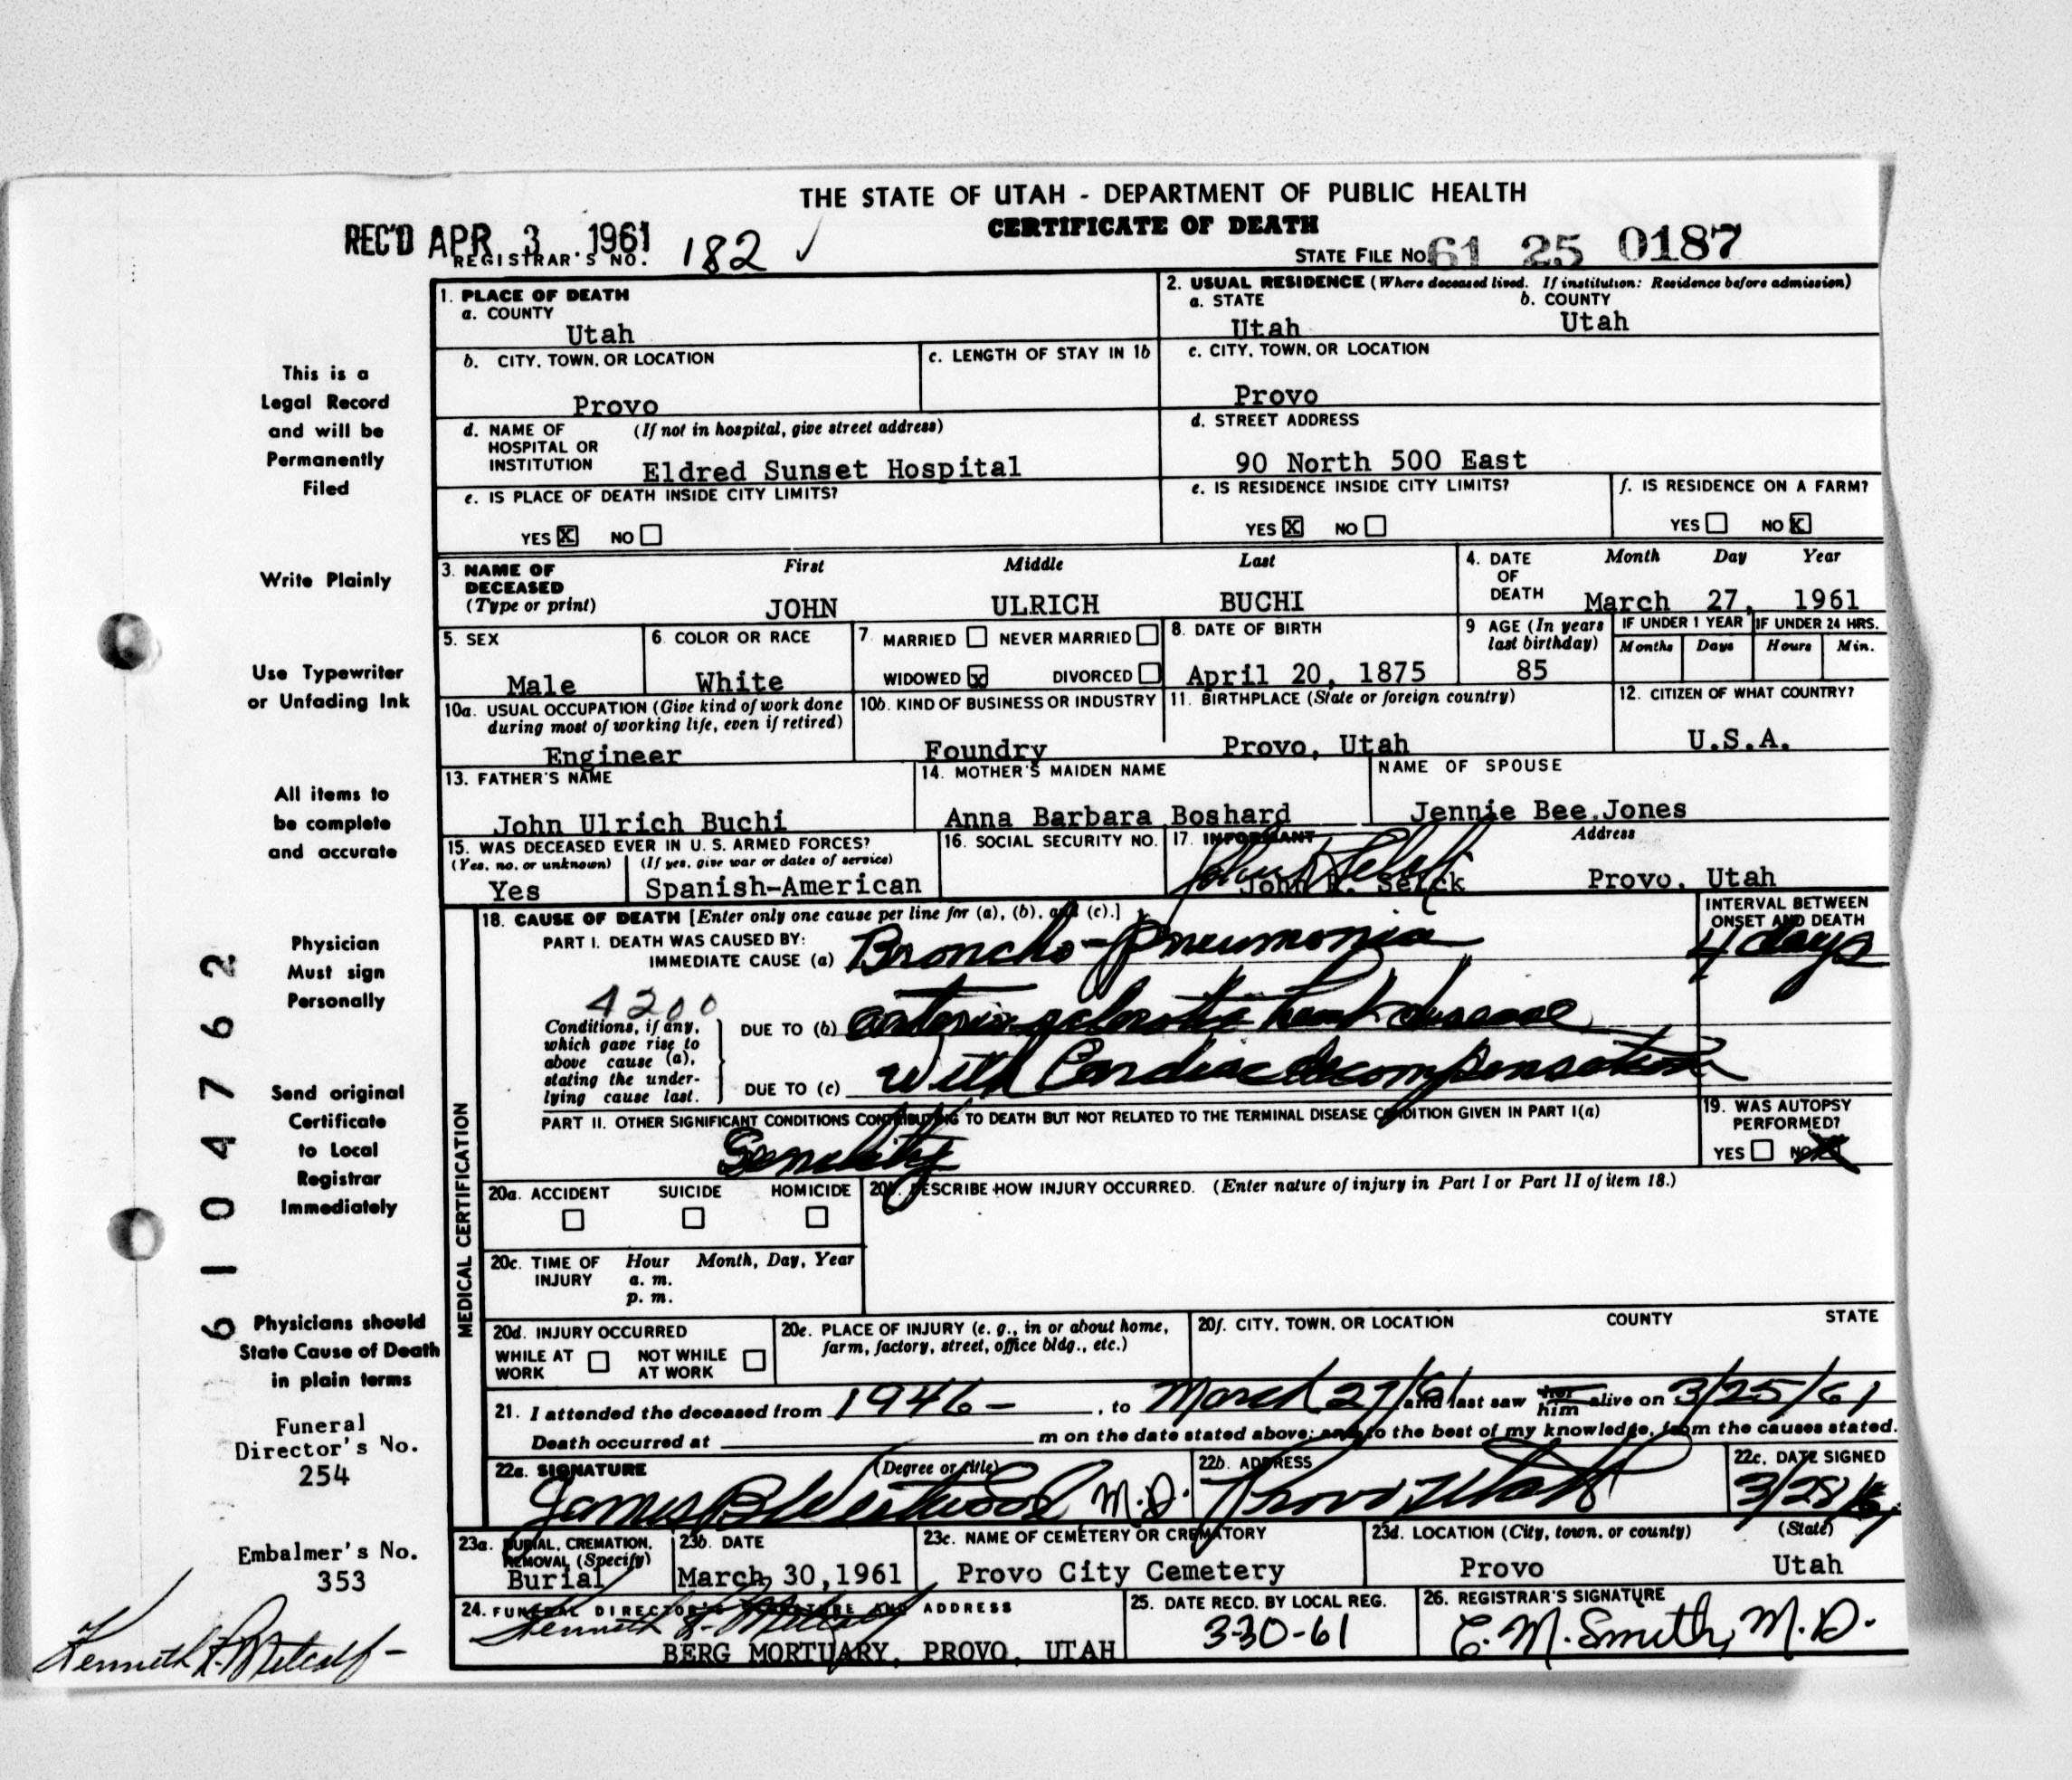 THE STATE OF UTAH - DEPARTMENT OF PUBLIC HEALTH
CERTIFICATE OF DEATH
REC'D APR 3 1961
REGISTRAR'S NO. 182 ✓
STATE FILE NO. 61 25 0187
This is a
Legal Record
and will be
Permanently
Filed
Write Plainly
Use Typewriter
or Unfading Ink
All items to
be complete
and accurate
Physician
Must sign
Personally
Send original
Certificate
to Local
Registrar
Immediately
Physicians should
State Cause of Death
in plain terms
Funeral
Director's No.
254
Embalmer's No.
353
Kenneth L. Metcalf
61047762
1. PLACE OF DEATH
a. COUNTY
Utah
2. USUAL RESIDENCE (Where deceased lived. If institution: Residence before admission)
a. STATE
Utah
b. COUNTY
Utah
b. CITY, TOWN, OR LOCATION
Provo
c. LENGTH OF STAY IN 1b
c. CITY, TOWN, OR LOCATION
Provo
d. NAME OF HOSPITAL OR INSTITUTION (If not in hospital, give street address)
Eldred Sunset Hospital
d. STREET ADDRESS
90 North 500 East
e. IS PLACE OF DEATH INSIDE CITY LIMITS?
YES X NO
e. IS RESIDENCE INSIDE CITY LIMITS?
YES X NO
f. IS RESIDENCE ON A FARM?
YES NO X
3. NAME OF DECEASED (Type or print)
First Middle Last
JOHN ULRICH BUCHI
4. DATE OF DEATH
Month Day Year
March 27, 1961
5. SEX
Male
6. COLOR OR RACE
White
7. MARRIED NEVER MARRIED
WIDOWED X DIVORCED
8. DATE OF BIRTH
April 20, 1875
9 AGE (In years last birthday)
85
IF UNDER 1 YEAR
Months Days
IF UNDER 24 HRS.
Hours Min.
10a. USUAL OCCUPATION (Give kind of work done during most of working life, even if retired)
Engineer
10b. KIND OF BUSINESS OR INDUSTRY
Foundry
11. BIRTHPLACE (State or foreign country)
Provo, Utah
12. CITIZEN OF WHAT COUNTRY?
U.S.A.
13. FATHER'S NAME
John Ulrich Buchi
14. MOTHER'S MAIDEN NAME
Anna Barbara Boshard
NAME OF SPOUSE
Jennie Bee Jones
15. WAS DECEASED EVER IN U. S. ARMED FORCES?
(Yes, no, or unknown) (If yes, give war or dates of service)
Yes Spanish-American
16. SOCIAL SECURITY NO.
17. INFORMANT
John Selck
Address
Provo, Utah
MEDICAL CERTIFICATION
18. CAUSE OF DEATH [Enter only one cause per line for (a), (b), and (c).]
INTERVAL BETWEEN ONSET AND DEATH
PART I. DEATH WAS CAUSED BY:
IMMEDIATE CAUSE (a) Broncho-pneumonia
4 days
4200
Conditions, if any, which gave rise to above cause (a), stating the underlying cause last.
DUE TO (b) arteriosclerotic heart disease
DUE TO (c) with Cardiac decompensation
PART II. OTHER SIGNIFICANT CONDITIONS CONTRIBUTING TO DEATH BUT NOT RELATED TO THE TERMINAL DISEASE CONDITION GIVEN IN PART I(a)
Senility
19. WAS AUTOPSY PERFORMED?
YES NO X
20a. ACCIDENT SUICIDE HOMICIDE
20b. DESCRIBE HOW INJURY OCCURRED. (Enter nature of injury in Part I or Part II of item 18.)
20c. TIME OF INJURY
Hour Month, Day, Year
a. m.
p. m.
20d. INJURY OCCURRED
WHILE AT WORK NOT WHILE AT WORK
20e. PLACE OF INJURY (e. g., in or about home, farm, factory, street, office bldg., etc.)
20f. CITY, TOWN, OR LOCATION COUNTY STATE
21. I attended the deceased from 1946 -, to March 27/61 and last saw her him alive on 3/25/61
Death occurred at m on the date stated above; and to the best of my knowledge, from the causes stated.
22a. SIGNATURE (Degree or title)
James B Westwood M.D.
22b. ADDRESS
Provo, Utah
22c. DATE SIGNED
3/28/61
23a. BURIAL, CREMATION, REMOVAL (Specify)
Burial
23b. DATE
March 30, 1961
23c. NAME OF CEMETERY OR CREMATORY
Provo City Cemetery
23d. LOCATION (City, town, or county) (State)
Provo Utah
24. FUNERAL DIRECTOR'S SIGNATURE AND ADDRESS
Kenneth L. Metcalf
BERG MORTUARY, PROVO, UTAH
25. DATE RECD. BY LOCAL REG.
3-30-61
26. REGISTRAR'S SIGNATURE
C. M. Smith, M.D.